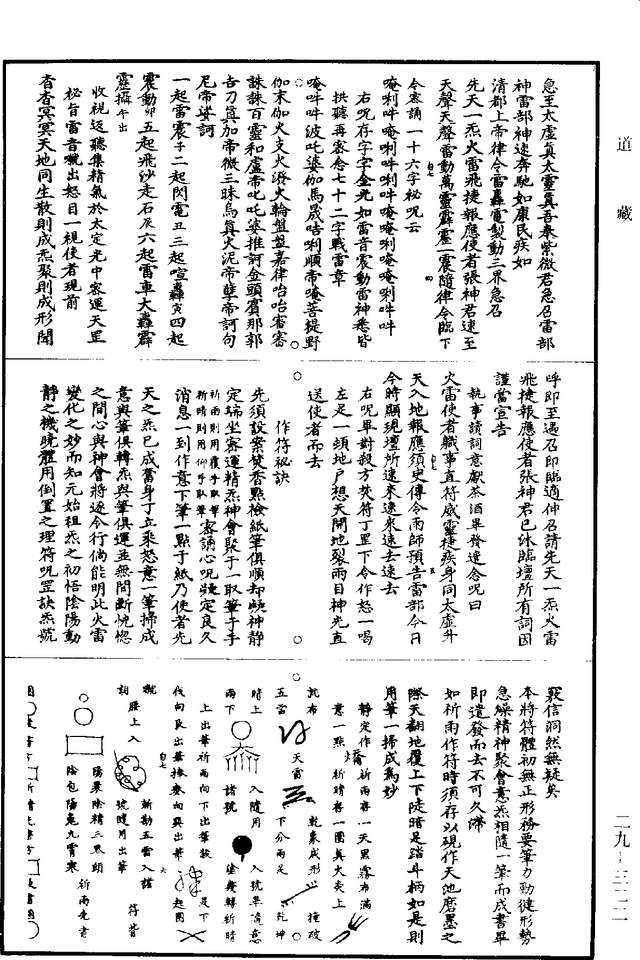 道藏
急至太虛真太靈真吾奉紫微君急召雷部
神雷部神速奔馳如康民疾如
清都上帝律令雷轟電掣動三界急召
先天一炁火雷飛捷報應使者張神君速至
天聲天聲雷動萬靈霹靂一震隨律令臨下
令衮誦一十六字秘呪云
唵唎吽唵唎吽唎吽唵唵唎唵唵唎吽吽
右呪存字字金光如雷音震動雷神悉皆
拱聽再密念七十二字戰雷章
唵吽吽波吒婆伽馬晟咭唎順帝唵菩提野
伽末伽火支火潑火輪盤盤嘉律咍咍審審
誅誅百靈和盧帝叱吒婆推訶金頭賓那郭
舌刀真加帝微三昧烏真火泥帝孽帝訶句
尼帝娑訶
一起雷震子二起閃電丑三起喧轟寅四起
震動卯五起飛沙走石辰六起雷車大轟霹
靂攝午出
收視返聽集精氣於太定光中密運天罡
秘旨雷音噀出怒目一視使者現前
杳杳冥冥天地同生散則成炁聚則成形聞
呼即至遇召即臨適伸召請先天一炁火雷
飛捷報應使者張神君已沐臨壇所有詞因
謹當宣告
執事讀詞意獻茶酒畢務遣念呪曰
火雷使者職事直符威靈捷疾身同太虛升
天入地報應須臾傳令雨師預告雷部今日
今時顯現壇所速來速來速去速去
右呪畢對殺方焚符丁罡下令作怒一喝
左足一頓地戶想天開地裂兩目神光直
送使者而去
作符秘訣
先須設案焚香點檢紙筆俱順却頻神靜
定端坐密運精炁神會聚于一取筆于手
祈雨則用覆手取筆
祈晴則用仰手取筆
密誦心呪凝定良久
消息一到作意下筆一點于紙乃使者先
天之炁已成奮身丁立乘怒意一筆掃成
意與筆俱轉炁與筆俱運並無間斷恍惚
之間心與神會將逐令行倘能明此火雷
變化之妙而知元始祖炁之初悟陰陽動
靜之機曉體用倒置之理符呪罡訣炁號
毀信洞然無疑矣
本將符體初無正形務要筆力勁徤形勢
急燥精神聚會意炁相隨一筆而成書畢
即遣發而去不可久滯
如祈雨作符時須存以硯作天地磨墨之
際天翻地覆上下陡暗是踏斗柄如是則
用筆一掃成為妙
靜定作 祈雨存一天黑霧布滿
意一點 祈晴存一團真火炎上
乾象成形
撞破
天雷
下分兩足
乾坤
五雷
晴上
入隨用
入號畢隨意
雨下
諸號
上出筆祈雨向下出筆
是下
起圈
腰上入
斬勘五雷入諸
號隨月出筆
符背
陽裹陰精三界朗
陰包陽氣九霄寒
祈雨先書
二九